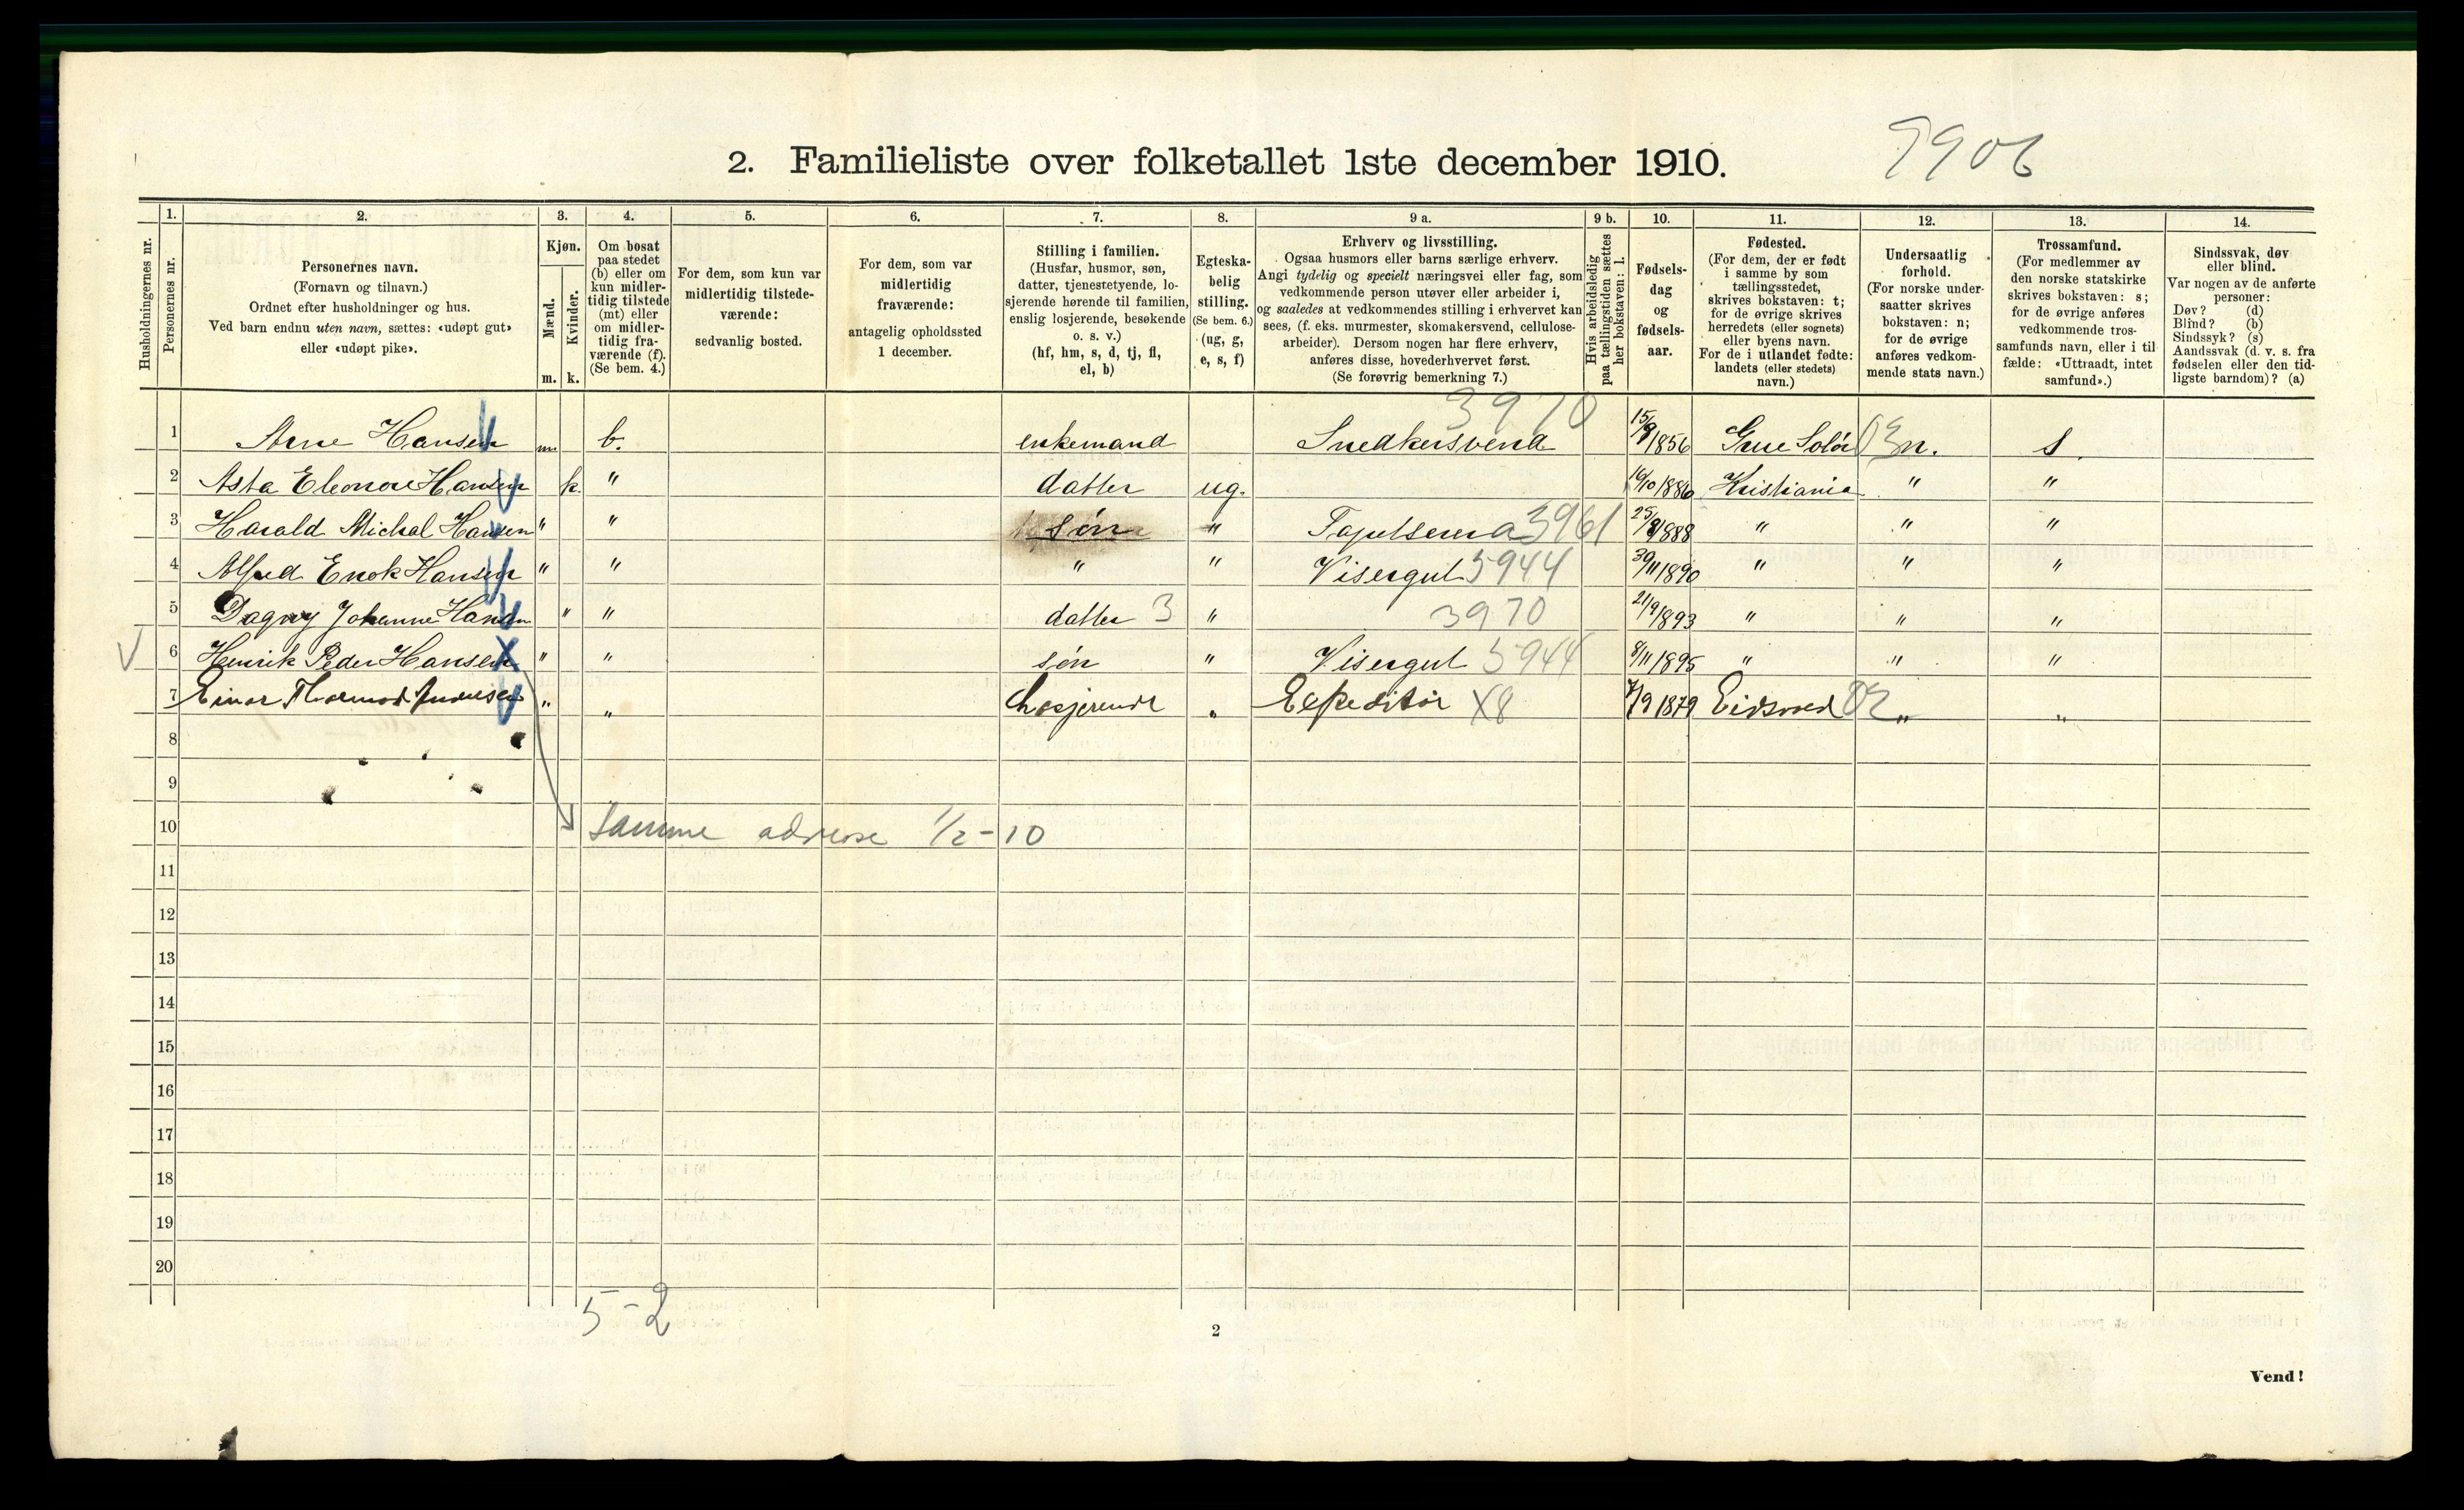 9906
2. Familieliste over folketallet 1ste december 1910.
Husholdningernes nr.
1.
Personernes nr.
2.
Personernes navn.
(Fornavn og tilnavn.)
Ordnet efter husholdninger og hus.
Ved barn endnu uten navn, sættes: «udøpt gut»
eller «udøpt pike».
3.
Kjøn.
Mænd.
Kvinder.
m. k.
4.
Om bosat
paa stedet
(b) eller om
kun midler-
tidig tilstede
(mt) eller
om midler-
tidig fra-
værende (f).
(Se bem. 4.)
5.
For dem, som kun var
midlertidig tilstede-
værende:
sedvanlig bosted.
6.
For dem, som var
midlertidig
fraværende:
antagelig opholdssted
1 december.
7.
Stilling i familien.
(Husfar, husmor, søn,
datter, tjenestetyende, lo-
sjerende hørende til familien,
enslig losjerende, besøkende
o. s. v.)
(hf, hm, s, d, tj, fl,
el, b)
8.
Egteska-
belig
stilling.
(Se bem. 6.)
(ug, g,
e, s, f)
9 a.
Erhverv og livsstilling.
Ogsaa husmors eller barns særlige erhverv.
Angi tydelig og specielt næringsvei eller fag, som
vedkommende person utøver eller arbeider i,
og saaledes at vedkommendes stilling i erhvervet kan
sees, (f. eks. murmester, skomakersvend, cellulose-
arbeider). Dersom nogen har flere erhverv,
anføres disse, hovederhvervet først.
(Se forøvrig bemerkning 7.)
9 b.
Hvis arbeidsledig
paa tællingstiden sættes
her bokstaven: l.
10.
Fødsels-
dag
og
fødsels-
aar.
11.
Fødested.
(For dem, der er født
i samme by som
tællingsstedet,
skrives bokstaven: t;
for de øvrige skrives
herredets (eller sognets)
eller byens navn.
For de i utlandet fødte:
landets (eller stedets)
navn.)
12.
Undersaatlig
forhold.
(For norske under-
saatter skrives
bokstaven: n;
for de øvrige
anføres vedkom-
mende stats navn.)
13.
Trossamfund.
(For medlemmer av
den norske statskirke
skrives bokstaven: s;
for de øvrige anføres
vedkommende tros-
samfunds navn, eller i til
fælde: «Uttraadt, intet
samfund».)
14.
Sindssvak, døv
eller blind.
Var nogen av de anførte
personer:
Døv? (d)
Blind? (b)
Sindssyk? (s)
Aandssvak (d. v. s. fra
fødselen eller den tid-
ligste barndom)? (a)
3970
1 Arne Hansen m. b. enkemand Snedkersvend 15/9 1856 Grue Solør 03 n. s.
2 Asta Eleonore Hansen k. " datter ug. 16/10 1886 Kristiania " "
3 Harald Michal Hansen " " søn " 3961 25/8 1888 " " "
4 Alfred Enok Hansen " " " " Visergut 5944 30/11 1890 " " "
5 Dagny Johanne Hansen " " datter 3 " 3970 21/9 1893 " " "
V 6 Henrik Peder Hansen X " " søn " Visergut 5944 8/11 1895 " " "
7 Einar Thormod " " Losjerende " Expeditør X8 7/9 1879 Eidsvold 02 " "
8
9
10 Samme adresse 1/2-10
11
12
13
14
15
16
17
18
19
20
5-2
2
Vend!